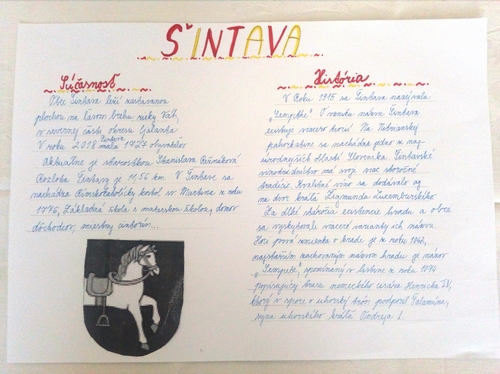 ŠINTAVA
Súčasnosť
Obec Šintava leží zastavanou
plochou na ľavom brehu rieky Váh,
v severnej časti okresu Galanta
V roku 2018 mala Šintava 1927 obyvateľov
Aktuálne je starostkou Stanislava
Rozloha Šintavy je 11,56 km. V Šintave sa
nachádza Rímskokatolícky kostol sv. Martina z roku
1776, Základná škola s materskou školou, domov
dôchodcov, miestny cintorín...
História
V Roku 1915 sa Šintava nazývala
"Sempthe". O vzniku názvu Šintava
existuje viacero teórií. Na Nitrianskej
pahorkatine sa nachádza jedna z naj-
oblastí Slovenska. Šintavské
vinohradníctvo má svoje staročné
tradície. Kvalitné víno sa dodávalo aj
na dvor kráľa Žigmunda Luxemburského.
Za dlhé stáročia existencie hradu a obce
sa vyskytovali viaceré varianty ich názvu.
Hoci prvá zmienka o hrade je z roku
najstarším zachovaným názvom hradu je názov
"Sempthe", spomínaný v listine z roku 1074
popisujúcej nemeckého cisára Henricha IV,
ktorý v spore o uhorský trón podporil Šalamúna,
syna uhorského kráľa Ondreja I.